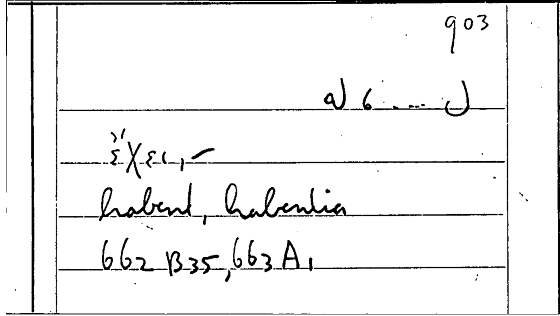 903
ἔχει, –
habent, habentia
662 B35, 663 A1